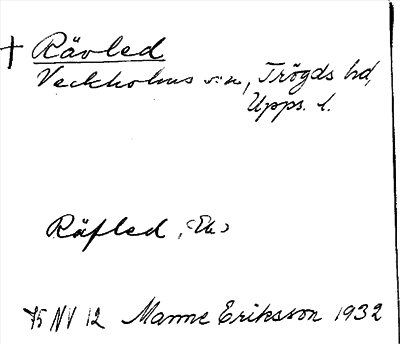 † Rävled
Veckholms sn, Trögds hd,
Upps. l.
Räfled, (Ek)
75 NV 12 Manne Eriksson 1932